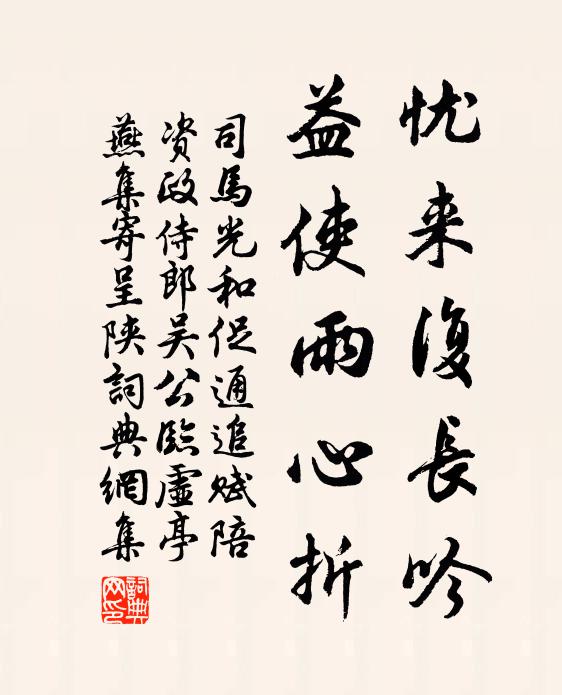 忧来復長吟
益使兩心折
司馬光和促通追賦陪
资政侍郎吴公臨虛亭
燕集寄呈陕詞典網集
詞典网印